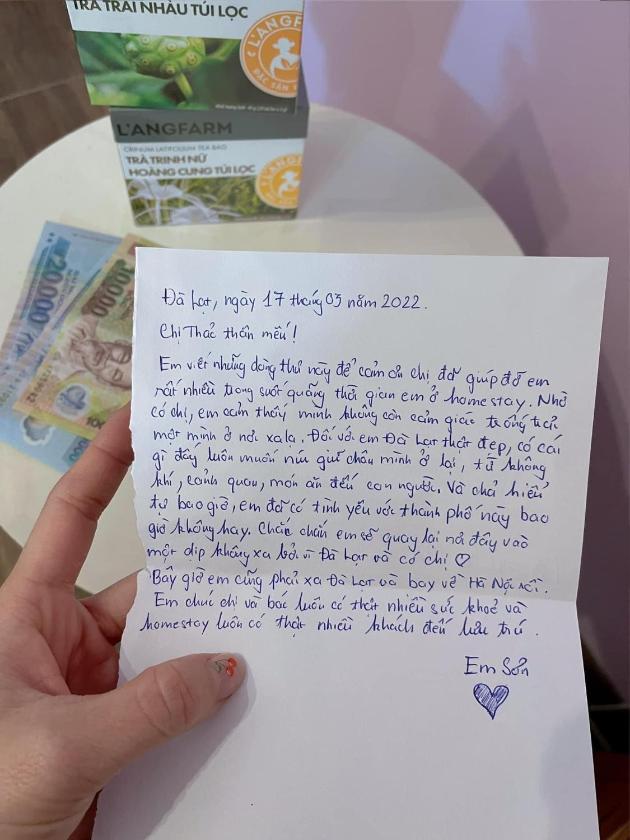 TRÀ TRÁI NHÀU TÚI LỌC
L'ANGFARM
L'ANGFARM
CRINUM LATIFOLIUM TEA BAG
TRÀ TRINH NỮ
HOÀNG CUNG TÚI LỌC
20000
Đà Lạt, ngày 17 tháng 03 năm 2022.
Chị Thảo thân mến!
Em viết những dòng thư này để cảm ơn chị đã giúp đỡ em
rất nhiều trong suốt quãng thời gian em ở homestay. Nhờ
có chị, em cảm thấy mình không còn cảm giác trống trải
một mình ở nơi xa lạ. Đối với em Đà Lạt thật đẹp, có cái
gì đấy luôn muốn níu giữ chân mình ở lại, từ không
khí, cảnh quan, món ăn đến con người. Và chả hiểu
tự bao giờ, em đã có tình yêu với thành phố này bao
giờ không hay. Chắc chắn em sẽ quay lại nơi đây vào
một dịp không xa bởi vì Đà Lạt và có chị ♡
Bây giờ em cũng phải xa Đà Lạt và bay về Hà Nội rồi.
Em chúc chị và bác luôn có thật nhiều sức khoẻ và
homestay luôn có thật nhiều khách đến lưu trú.
Em Sơn